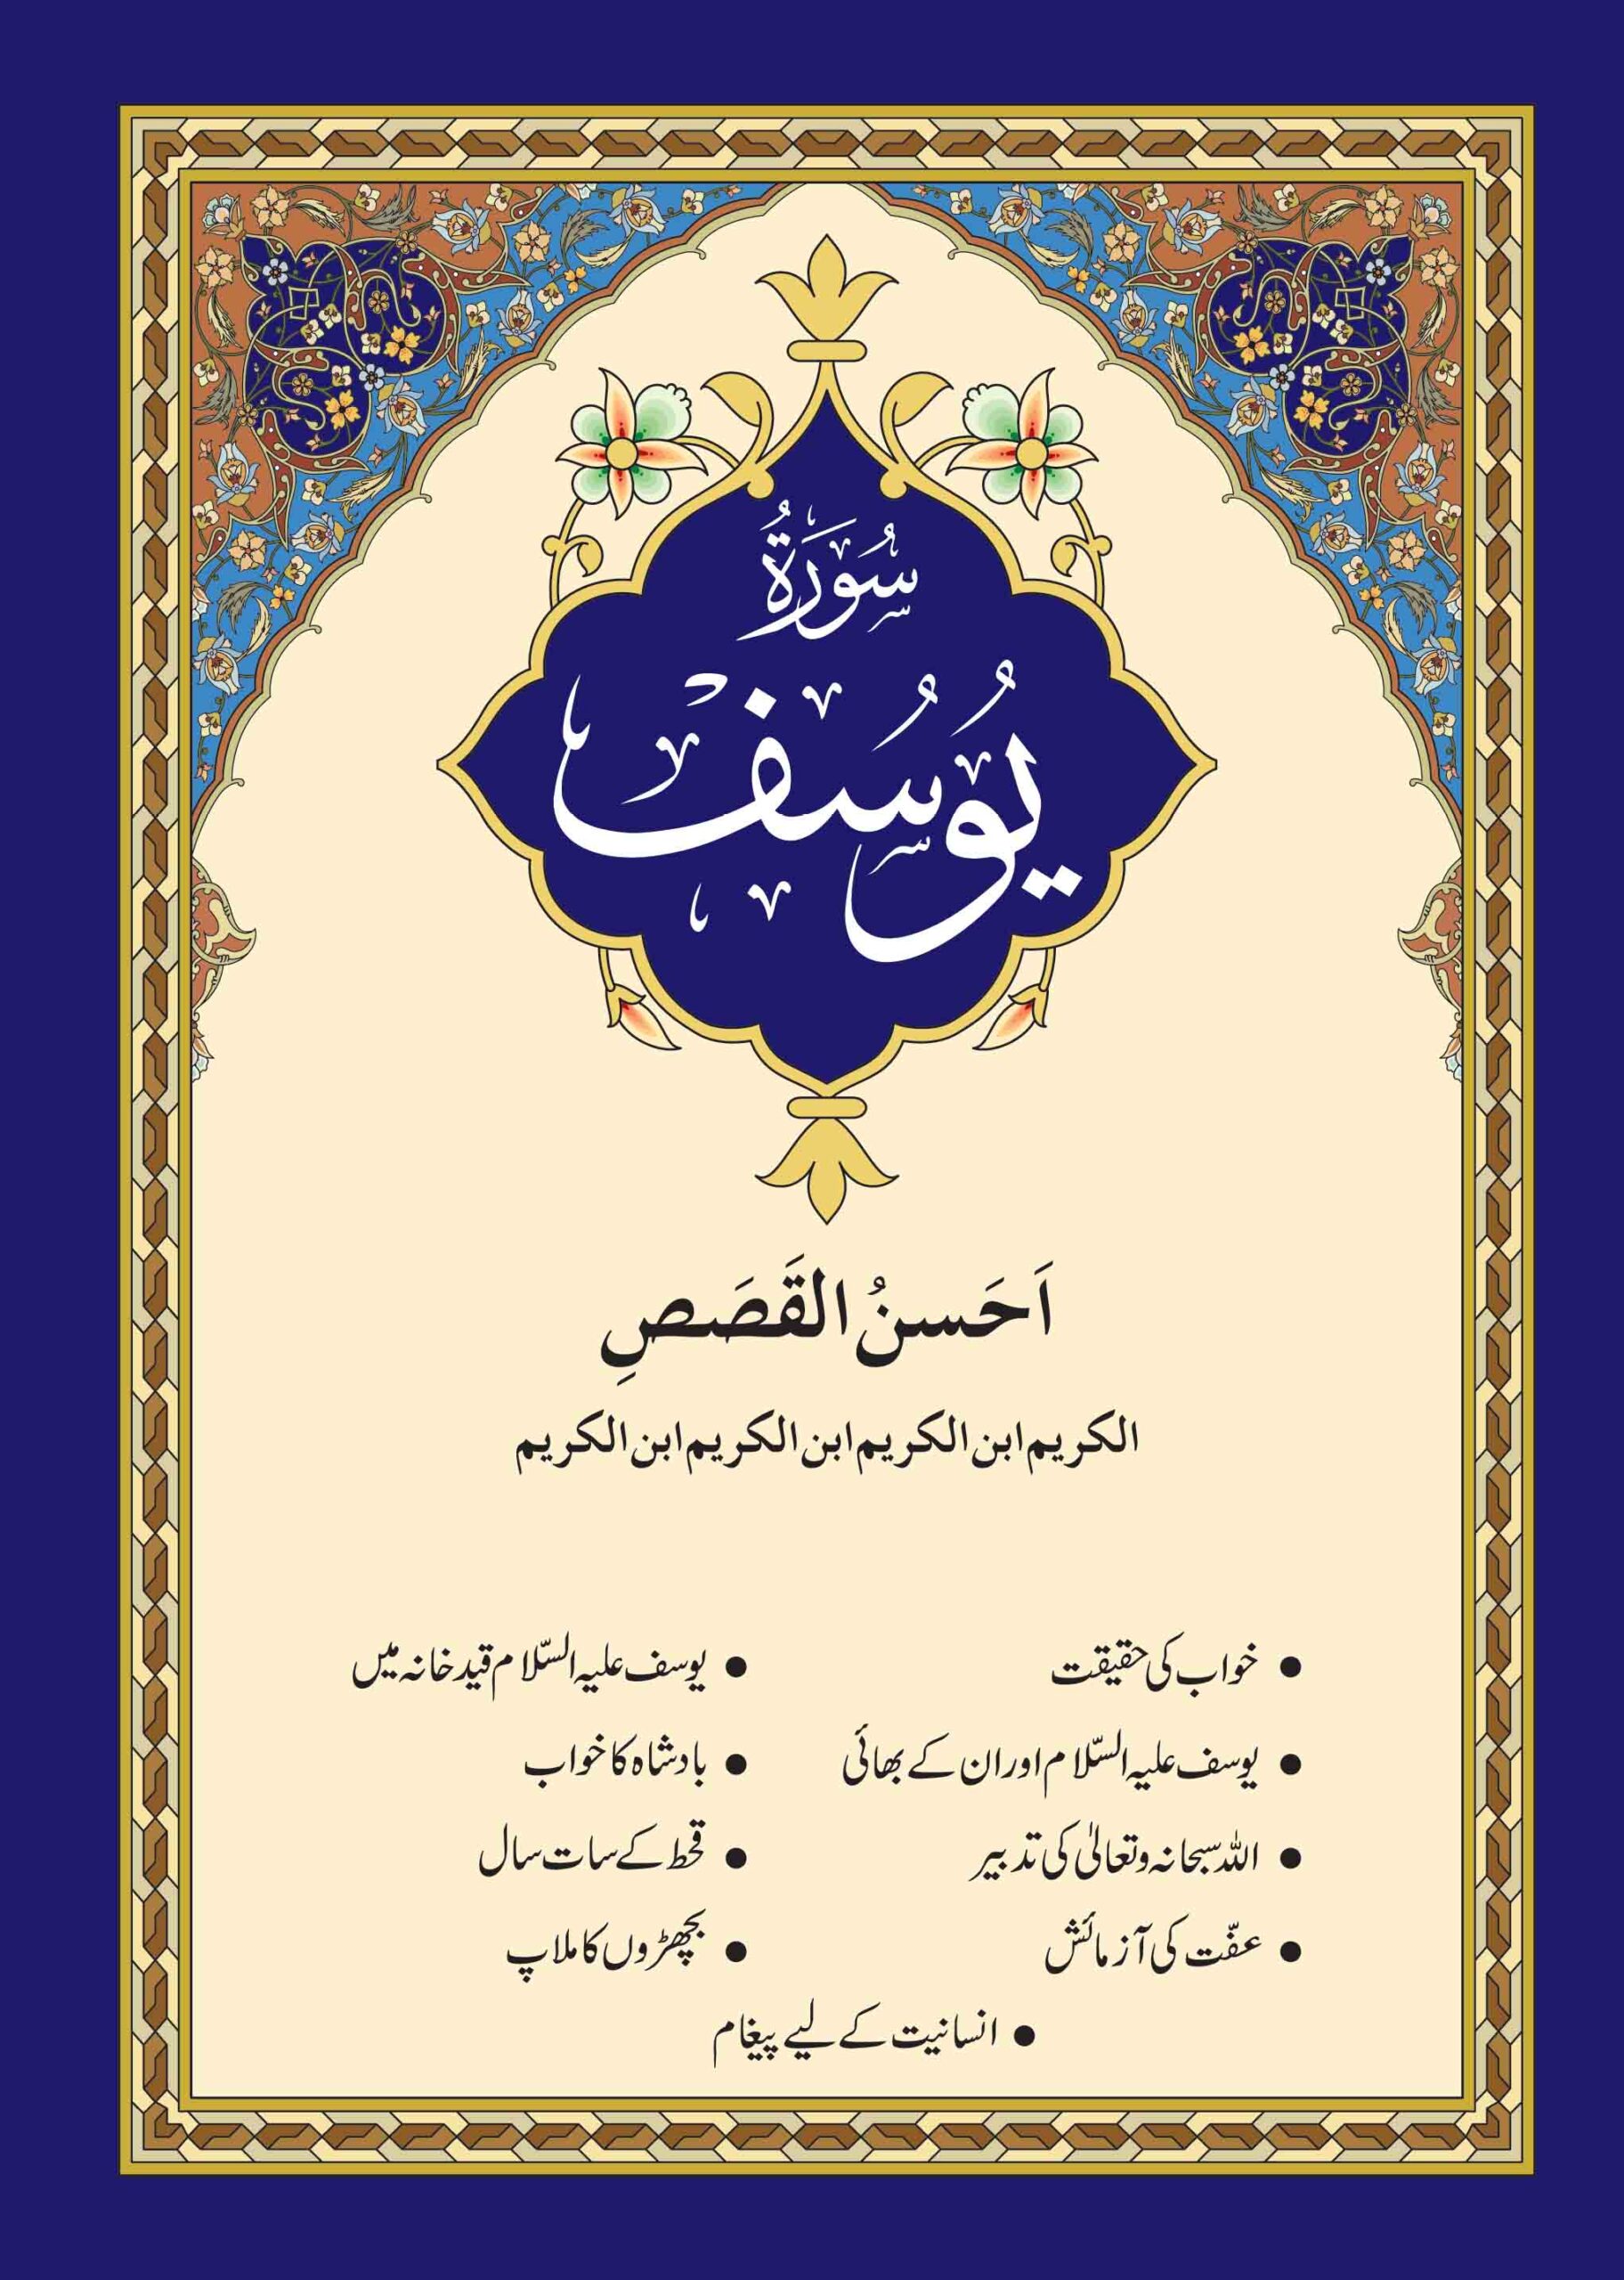 سُورَةُ
يُوسُف
اَحَسنُ القَصَصِ
الکریم ابن الکریم ابن الکریم ابن الکریم
• خواب کی حقیقت
• یوسف علیہ السّلام اور ان کے بھائی
• اللہ سبحانہ وتعالیٰ کی تدبیر
• عفّت کی آزمائش
• یوسف علیہ السّلام قید خانہ میں
• بادشاہ کا خواب
• قحط کے سات سال
• بچھڑوں کا ملاپ
• انسانیت کے لیے پیغام